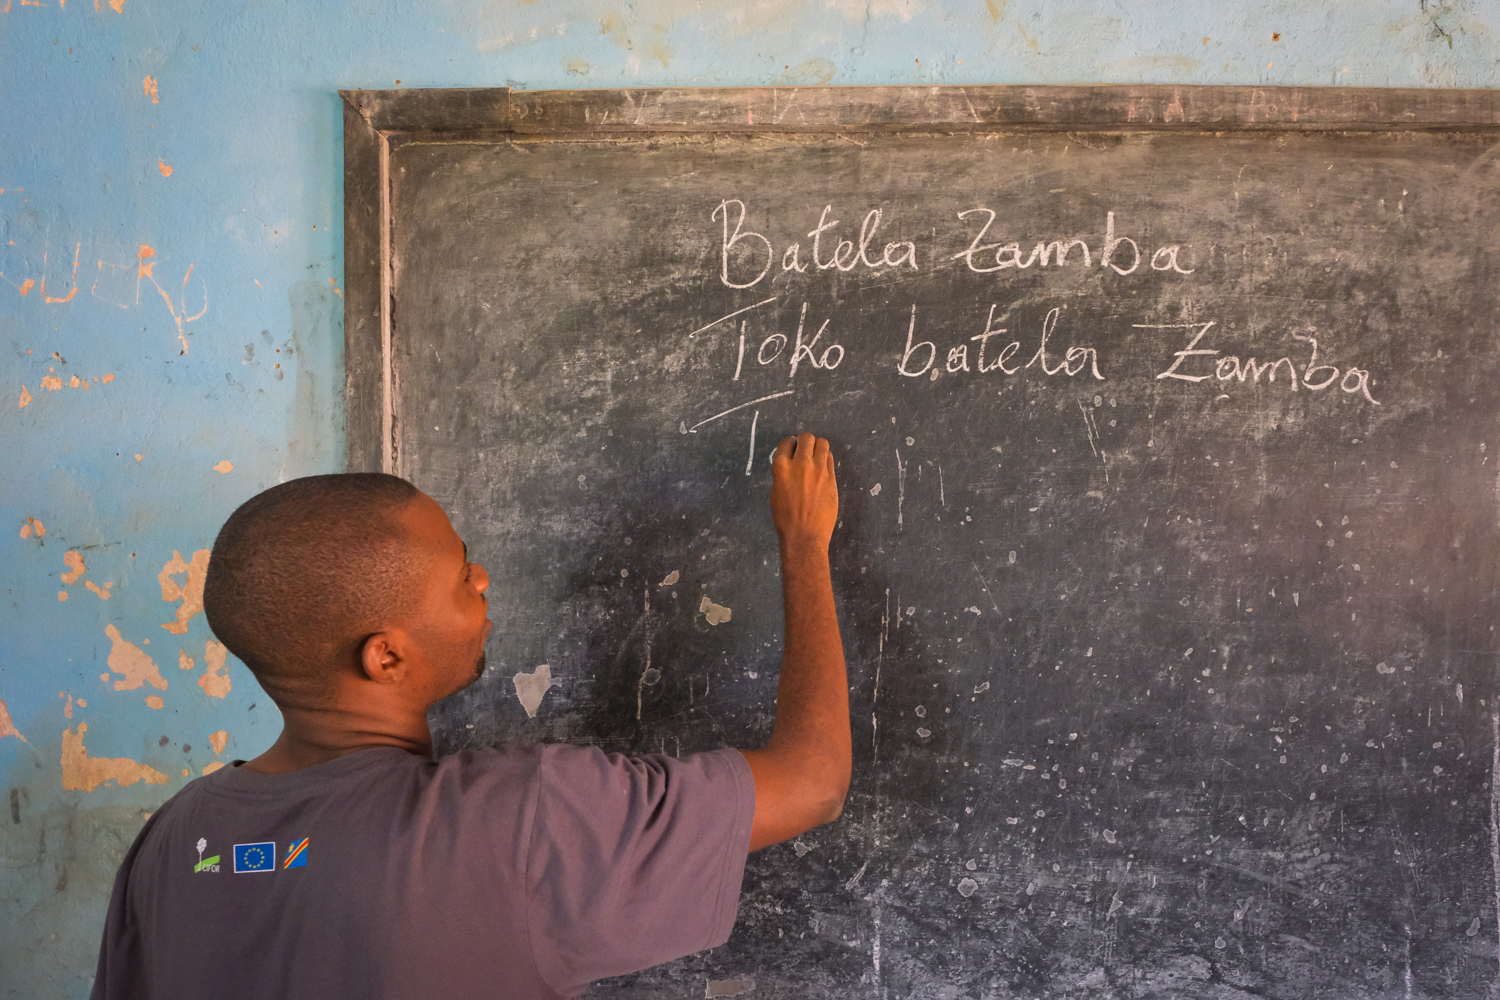 Batela Zamba
Toko batela Zamba
To
CIFOR